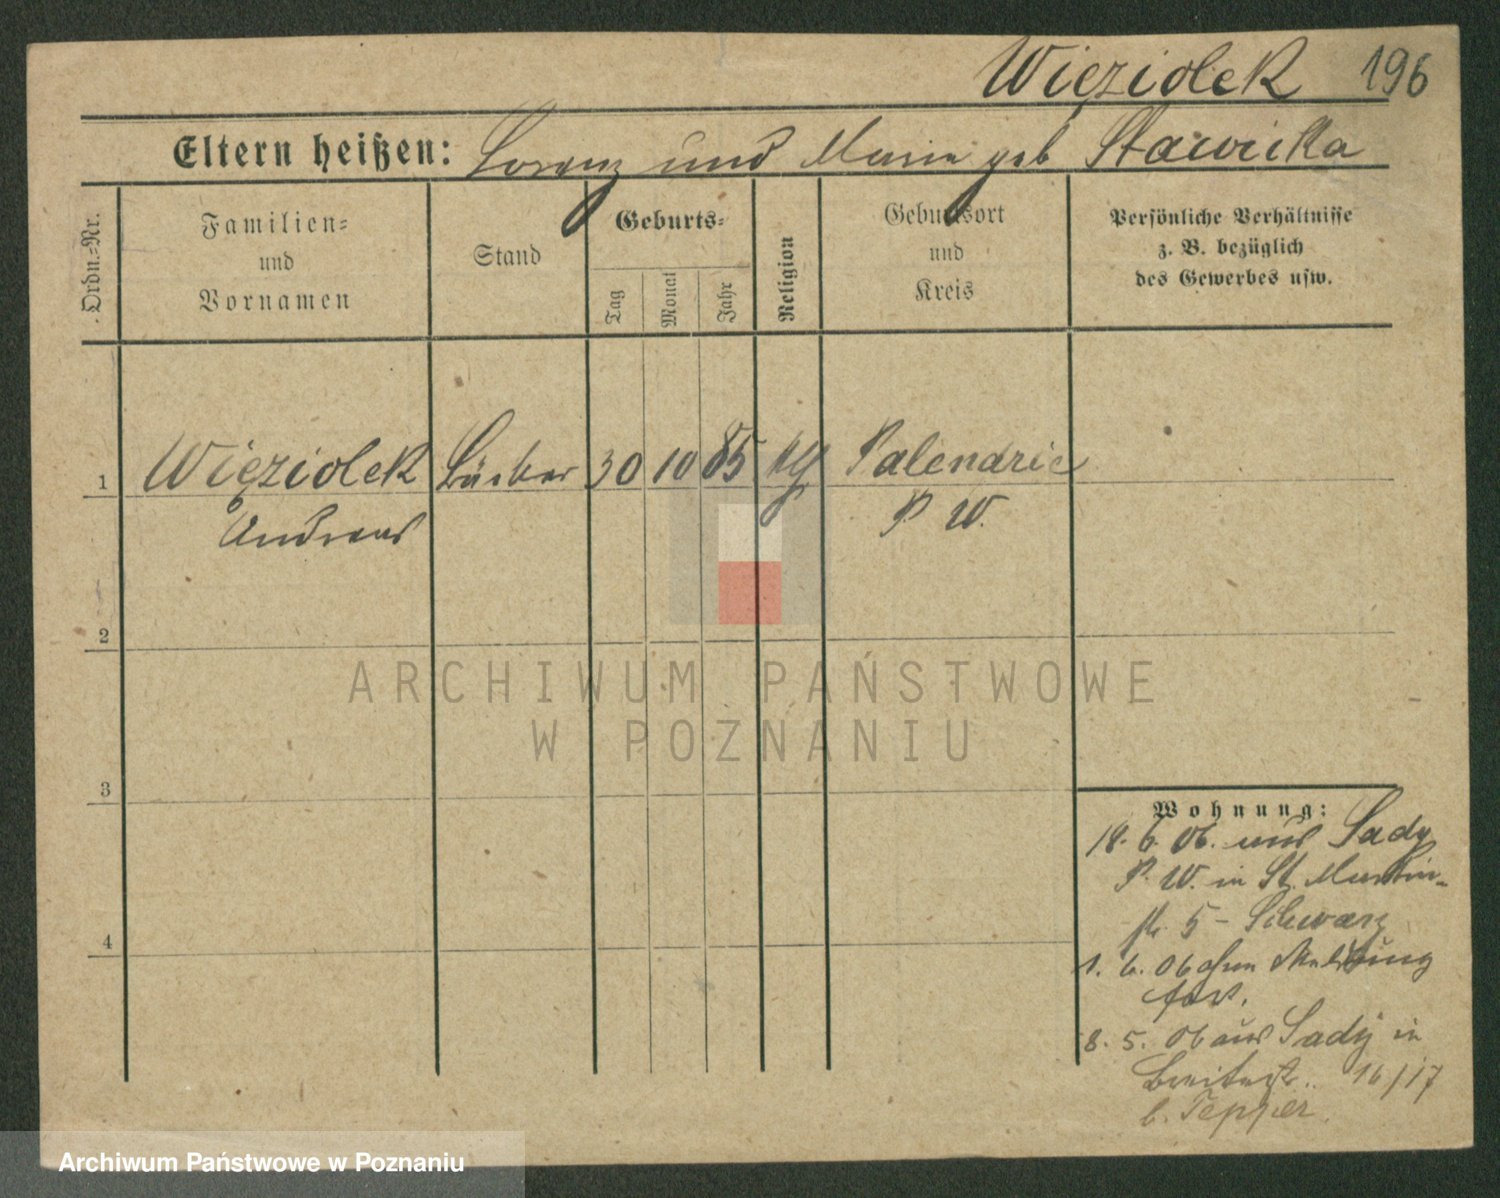 Więziolek 196
Eltern heißen: Lorenz und Maria geb Stawicka
Ordn.-Nr.
Familien-
und
Vornamen
Stand
Geburts-
Tag
Monat
Jahr
Religion
Geburtsort
und
Kreis
Persönliche Verhältnisse
z. B. bezüglich
des Gewerbes usw.
1 Więziolek Bäcker 30 10 85 Palendzie
Andreas P. W.
2
3
4
Wohnung:
18. 6. 06. aus Sady
P. W. in St. Martin-
str. 5 - Schwarz
1. 6. 06 ohne Meldung
fort.
8. 5. 06 aus Sady in
Breitestr. 16/17
b. Tepper.
ARCHIWUM PAŃSTWOWE
W POZNANIU
Archiwum Państwowe w Poznaniu